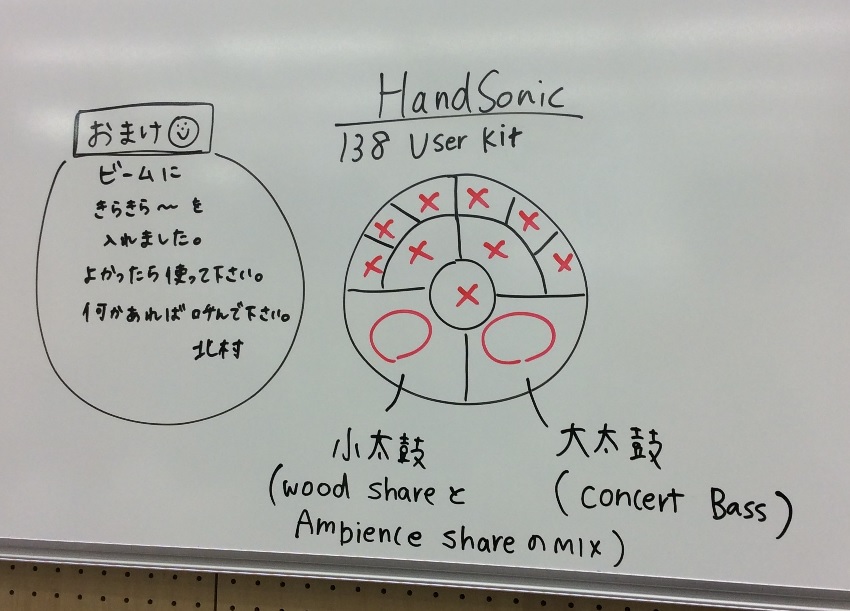 おまけ
ビームに
きらきら〜を
入れました。
よかったら使って下さい。
何かあれば呼んで下さい。
北村
HandSonic
138 User Kit
小太鼓
(wood share と
Ambience share のMIX)
大太鼓
(Concert Bass)